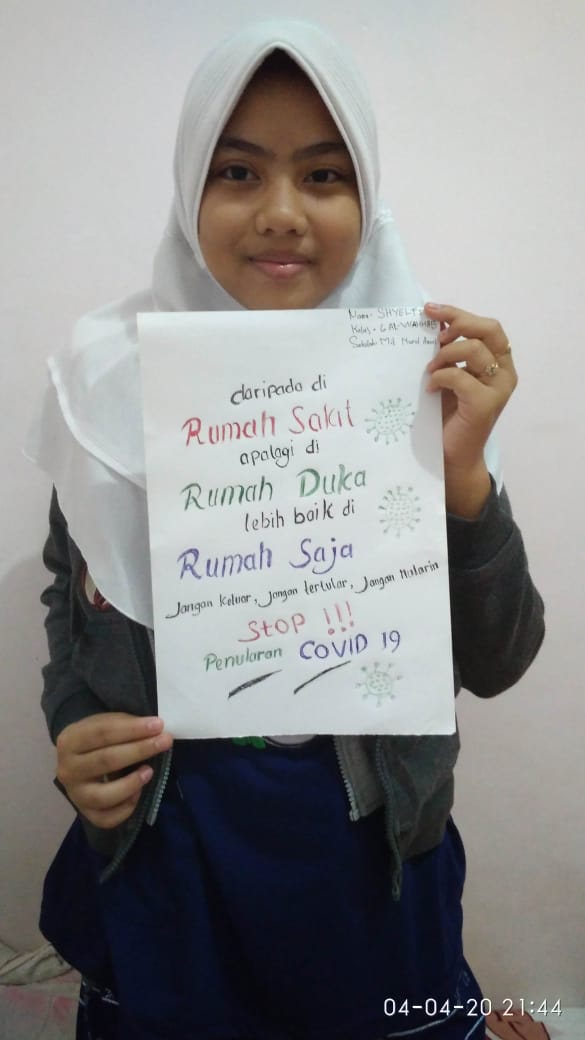 Nama - SHYELT
Kelas - 6 Al-WAHHAB
Sekolah Md.
daripada di
Rumah Sakit
apalagi di
Rumah Duka
lebih baik di
Rumah Saja
Jangan keluar, jangan tertular, Jangan Nularin
Stop !!!
Penularan COVID 19
04-04-20 21:44